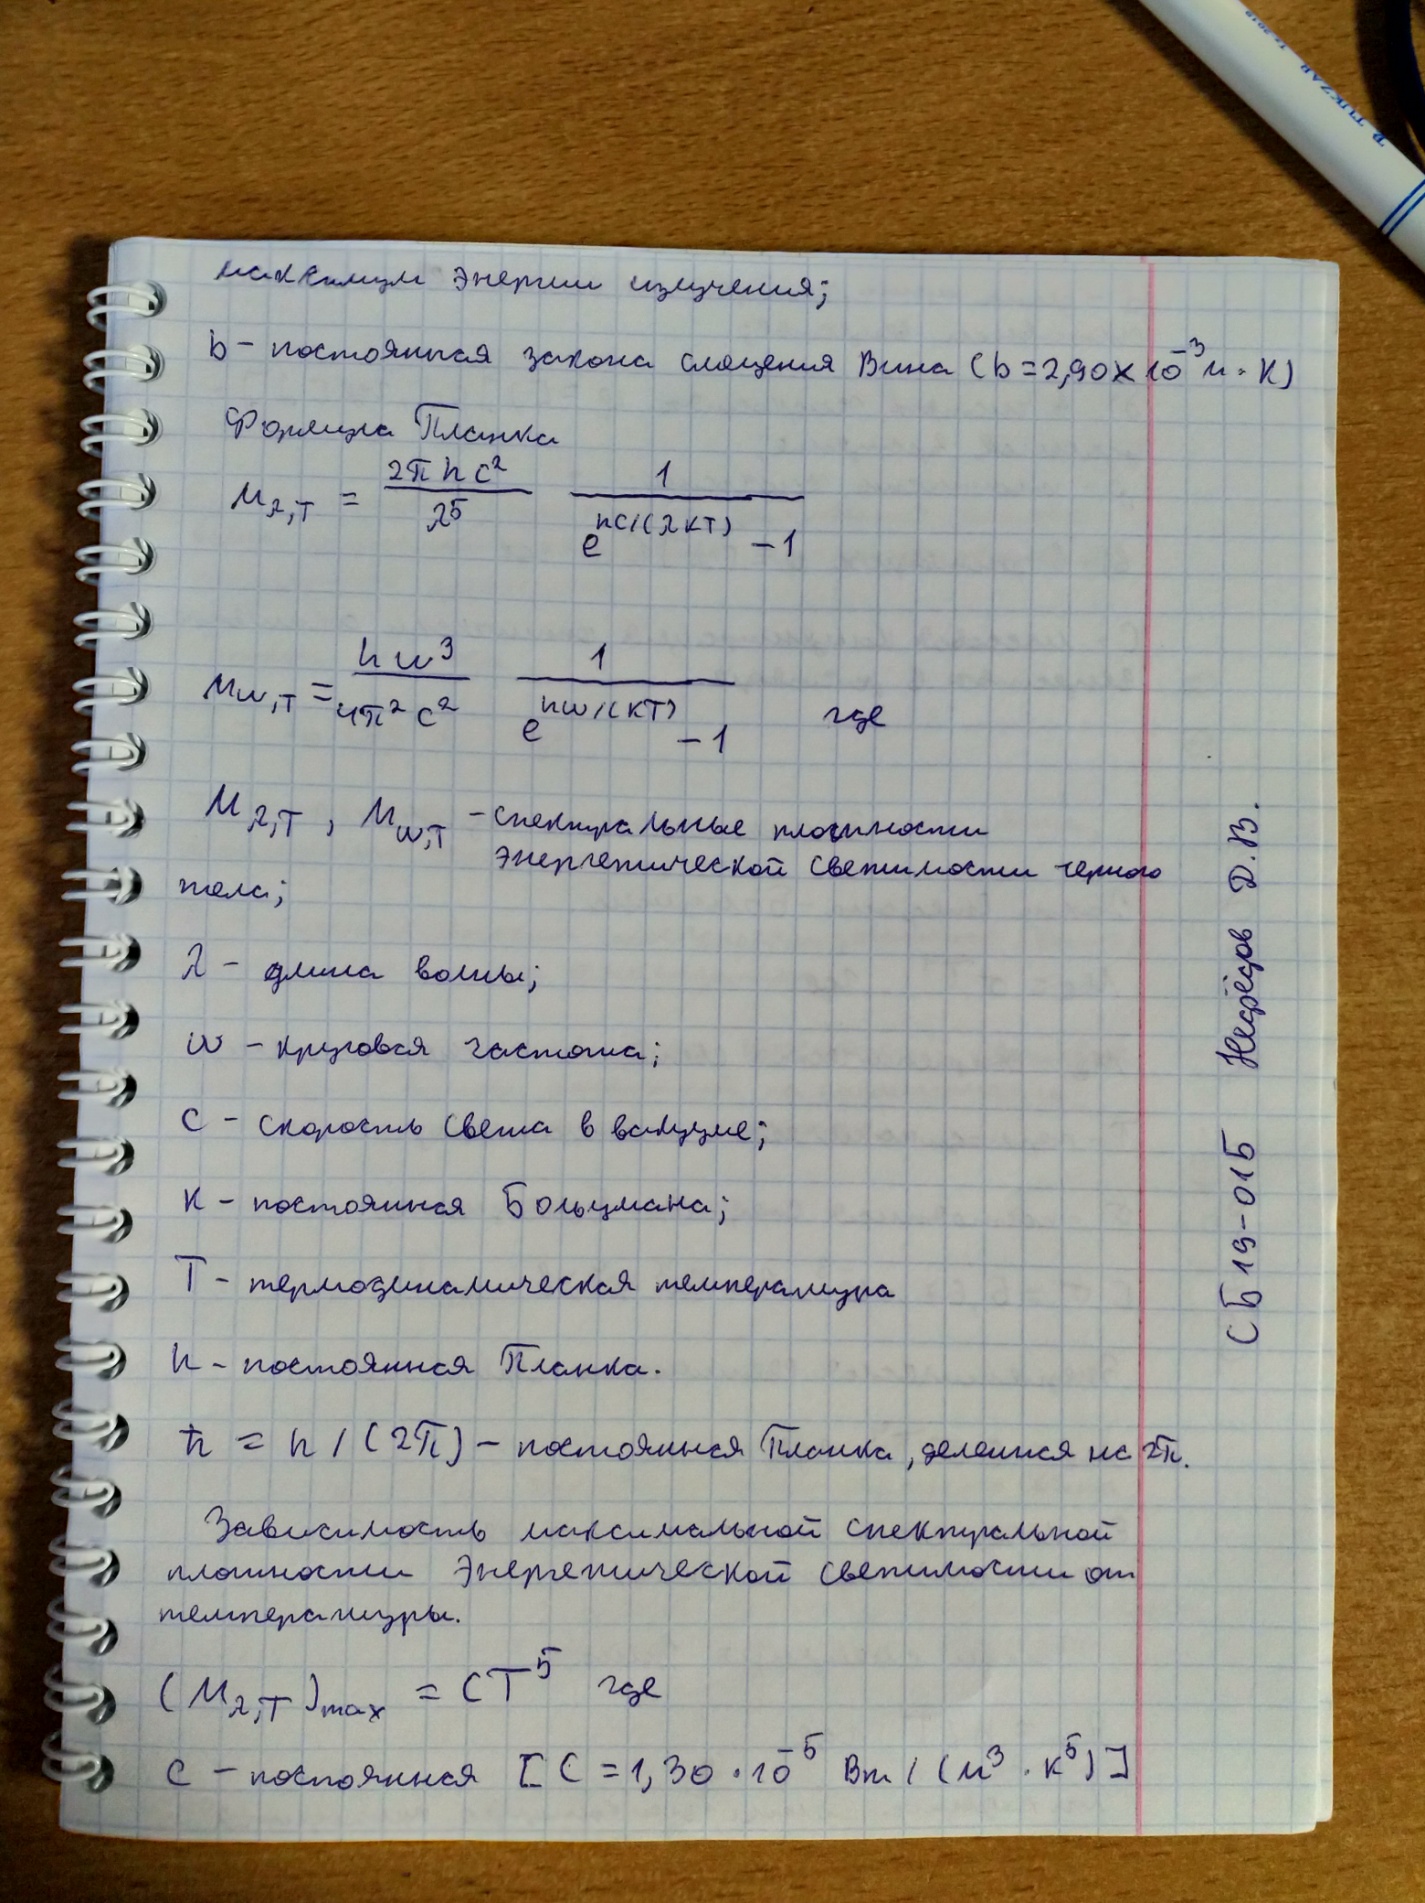 максимум энергии излучения;
b – постоянная закона смещения Вина (b = 2,90 × 10⁻³ м · К)
Формула Планка
M_λ,T = 2πhc² / λ⁵ 1 / (e^(hc/(λkT)) – 1)
M_ω,T = hω³ / 4π²c² 1 / (e^(hω/(kT)) – 1) где
M_λ,T , M_ω,T – спектральные плотности
энергетической светимости черного
тела;
λ – длина волны;
ω – круговая частота;
c – скорость света в вакууме;
k – постоянная Больцмана;
T – термодинамическая температура
h – постоянная Планка.
ħ = h / (2π) – постоянная Планка, деленная на 2π.
Зависимость максимальной спектральной
плотности энергетической светимости от
температуры.
(M_λ,T)max = CT⁵ где
C – постоянная [C = 1,30 · 10⁻⁵ Вт / (м³ · К⁵)]
СБ19-01Б Нефёдов Д.В.
TUKZAR